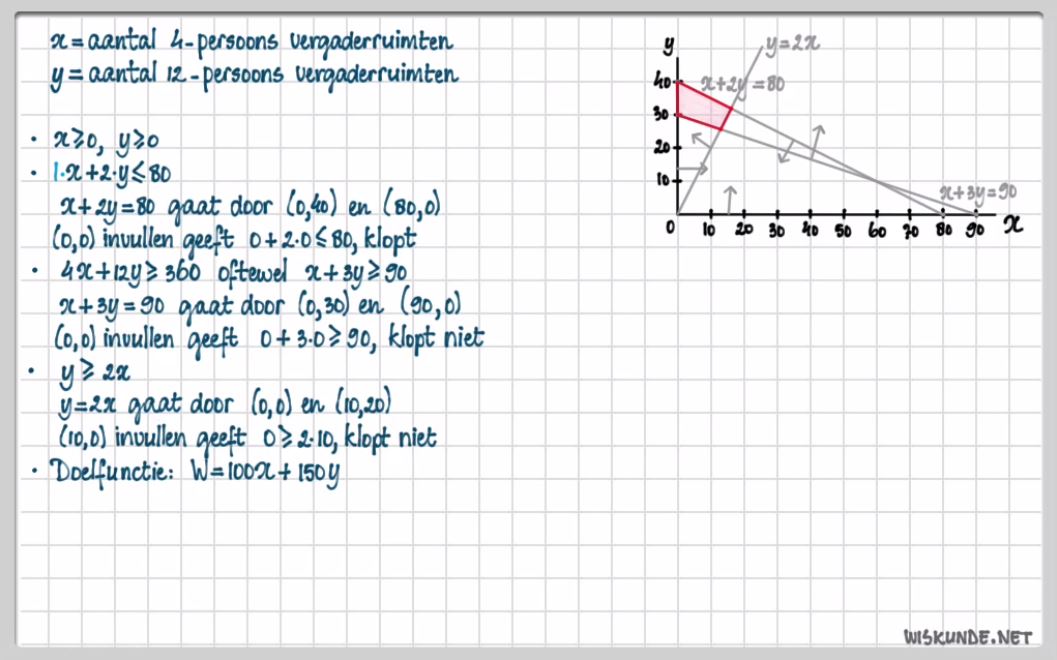 x = aantal 4-persoons vergaderruimten
y = aantal 12-persoons vergaderruimten
• x ≥ 0, y ≥ 0
• 1·x + 2·y ≤ 80
x + 2y = 80 gaat door (0,40) en (80,0)
(0,0) invullen geeft 0 + 2·0 ≤ 80, klopt
• 4x + 12y ≥ 360 oftewel x + 3y ≥ 90
x + 3y = 90 gaat door (0,30) en (90,0)
(0,0) invullen geeft 0 + 3·0 ≥ 90, klopt niet
• y ≥ 2x
y = 2x gaat door (0,0) en (10,20)
(10,0) invullen geeft 0 ≥ 2·10, klopt niet
• Doelfunctie: W = 100x + 150y
y
y = 2x
40
x + 2y = 80
30
20
10
x + 3y = 90
0 10 20 30 40 50 60 70 80 90 x
WISKUNDE.NET